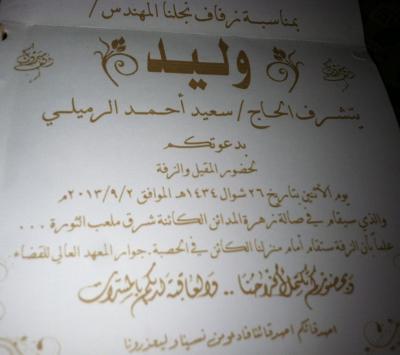 بمناسبة زفاف نجلنا المهندس /
وليد
يتشرف الحاج / سعيد أحمد الرميلي
بدعوتكم
لحضور المقيل والزفة
يوم الاثنين بتاريخ ٢٦ شوال ١٤٣٤هـ الموافق ٢٠١٣/٩/٢م
والذي سيقام في صالة زهرة المدائن الكائنة شرق ملعب الثورة ...
علماً بأن الزفة ستقام أمام منزلنا الكائن في الحصبة. جوار المعهد العالي للقضاء
وبحضوركم تكتمل أفراحنا .. والعاقبة لديكم بالمسرات
اصدقائكم اصدقائنا فادعو من نسينا وليعذرونا